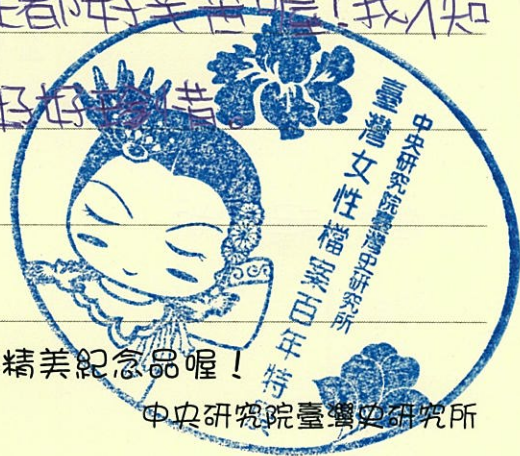 都好美喔!我
好好珍惜。
中央研究院臺灣史研究所
臺灣女性檔案百年特
精美紀念品喔!
中央研究院臺灣史研究所